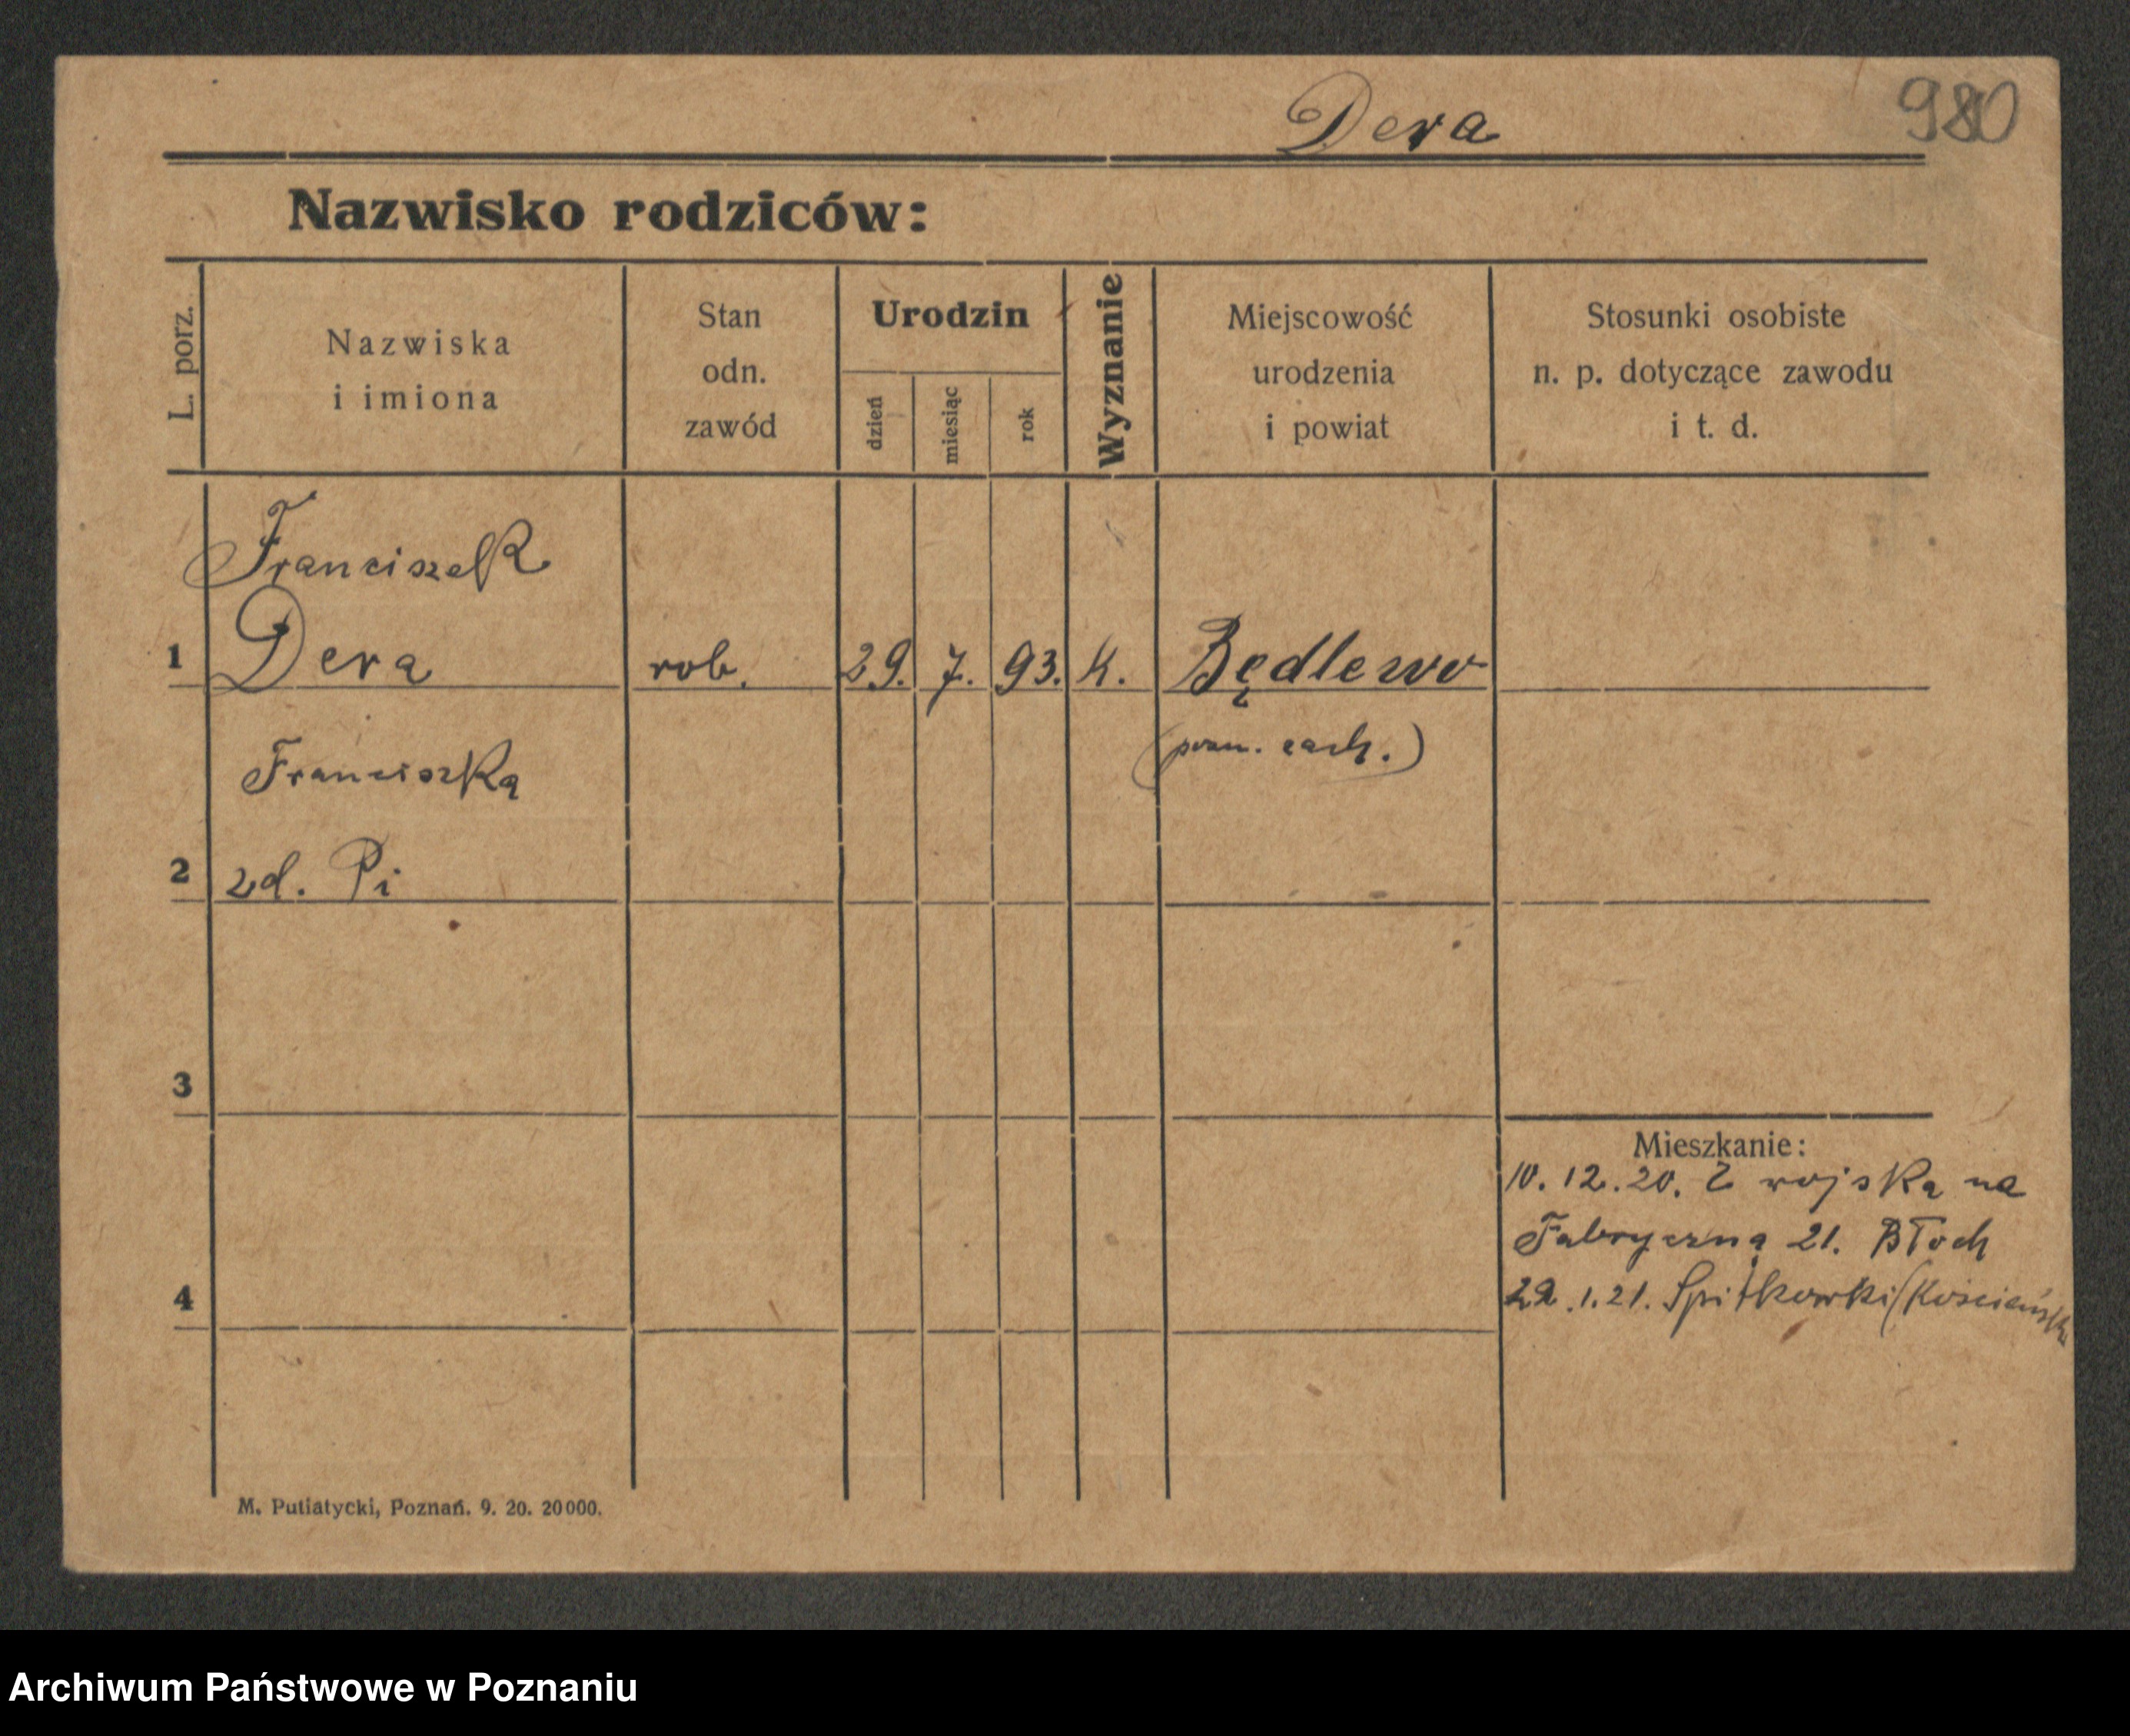 Dera
980
Nazwisko rodziców:
L. porz.
Nazwiska
i imiona
Stan
odn.
zawód
Urodzin
dzień
miesiąc
rok
Wyznanie
Miejscowość
urodzenia
i powiat
Stosunki osobiste
n. p. dotyczące zawodu
i t. d.
Franciszek
1 Dera rob. 29. 7. 93. k. Będlewo
Franciszka (pozn. zach.)
2 zd. Pi
3
Mieszkanie:
10. 12. 20. Z wojska na
Fabryczną 21. Błoch
4 22. 1. 21. Spitkowki (Kościańsk
M. Putiatycki, Poznań. 9. 20. 20000.
Archiwum Państwowe w Poznaniu